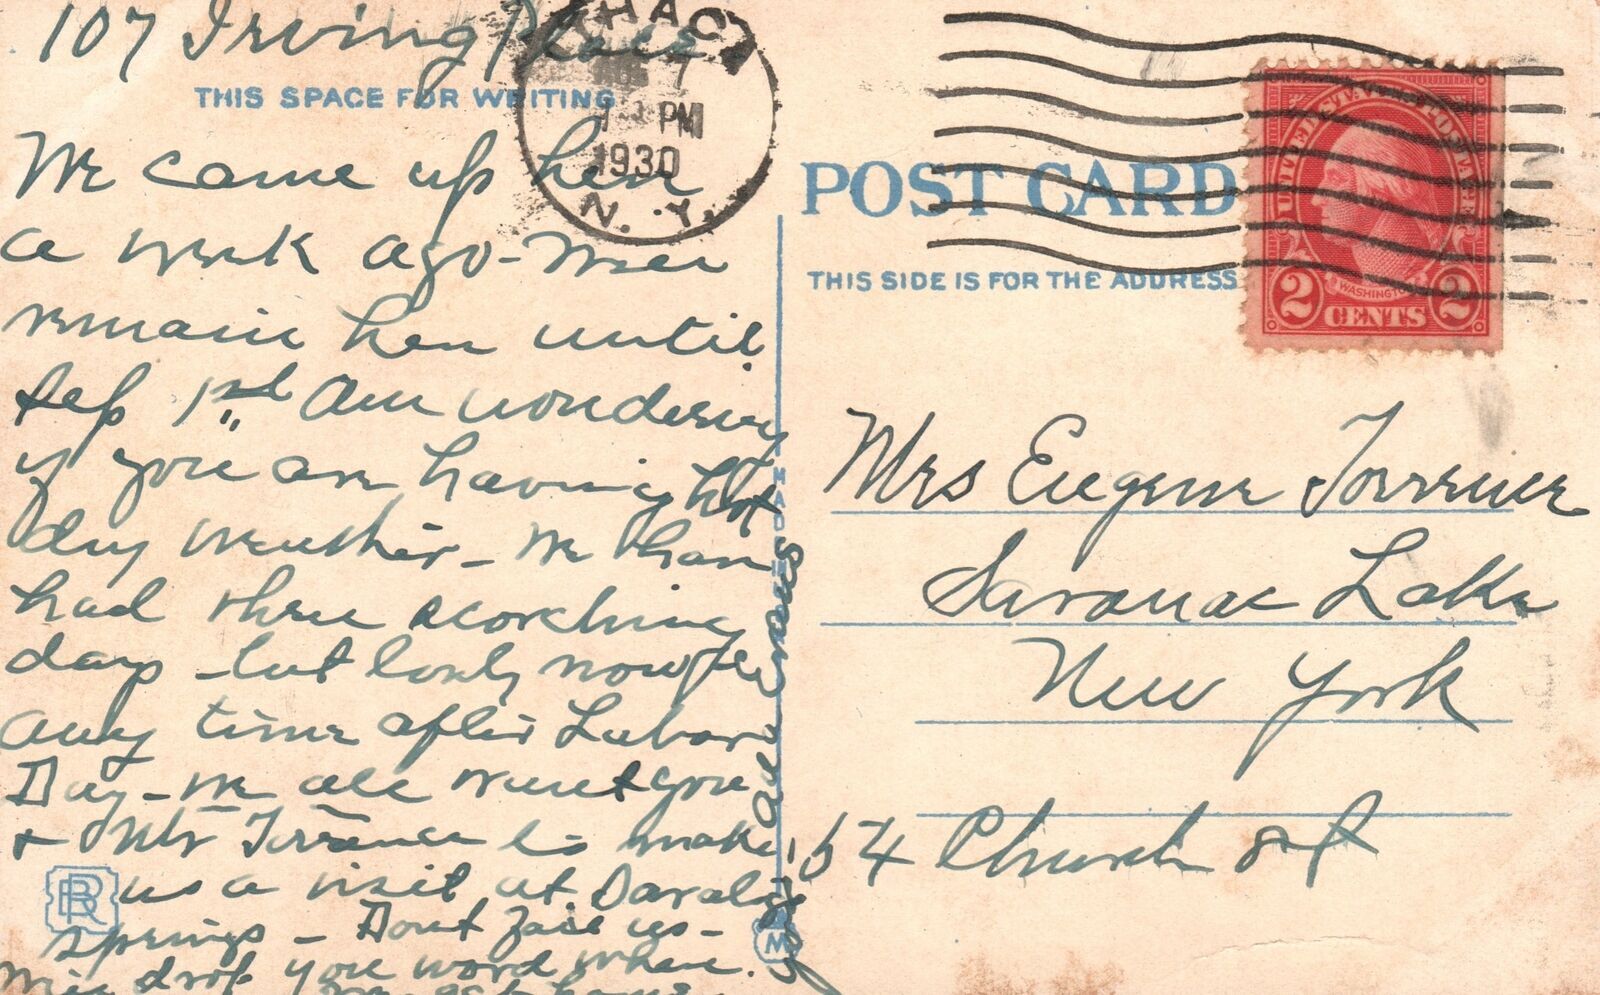 107 Irving Place
THIS SPACE FOR WRITING
We came up here
a week ago - Will
remain here until
Sep 1st Am wondering
if you are having hot
dry weather - We have
had three scorching
days - but lovely now
any time after Labor
Day - we all want you
& Mr Torrance to make
us a visit at
Springs - Dont fail us -
Will drop you word when
we get home
ITHACA
AUG 7
PM
1930
N. Y.
POST CARD
THIS SIDE IS FOR THE ADDRESS
UNITED STATES POSTAGE
WASHINGTON
2 CENTS 2
Mrs Eugene Torrence
Saranac Lake
New York
64 Church St